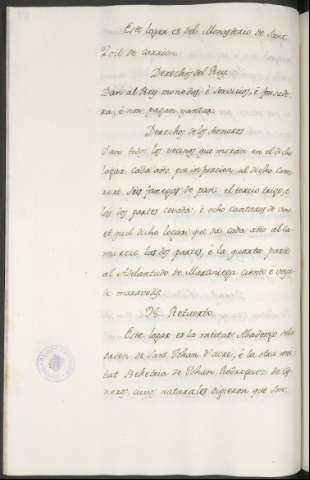 Este logar es del Monesterio de Sant
Zoil de Carrion.
Derechos del Rey
Dan al Rey monedas, è servicios, è fonsade
ra, è non pagan yantar.
Derechos de los Senores
Dan todos los vecinos que moran en el dicho
logar cada año por infurcion al dicho
seis fanegas de pan: el tercio trigo, è
las dos partes cebada: è ocho cantaras de vino
el dicho logar que da cada año al
las dos partes, è la quarta parte
al Adelantado de Maraniega ciento è
maravedis.
De Retuerto.
Este logar es la mitat Abadengo de la
orden de Sant Johan d'acre, è la otra mi
tat Behetria de Johan Rodriguez de Cis
neros, cuyos naturales digieron que son: